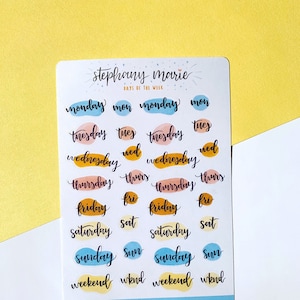 stephany marie
DAYS OF THE WEEK
monday mon monday mon
tuesday tues tuesday tues
wednesday wed wednesday wed
thursday thurs thursday thurs
friday fri friday fri
saturday sat saturday sat
sunday sun sunday sun
weekend wknd weekend wknd